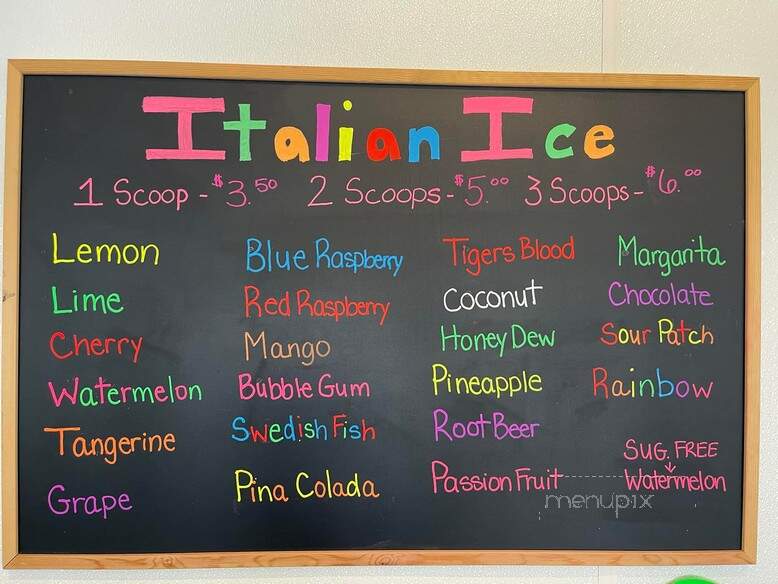 Italian Ice
1 Scoop - $3.50 2 Scoops - $5.00 3 Scoops - $6.00
Lemon
Lime
Cherry
Watermelon
Tangerine
Grape
Blue Raspberry
Red Raspberry
Mango
Bubble Gum
Swedish Fish
Pina Colada
Tigers Blood
Coconut
Honey Dew
Pineapple
Root Beer
Passion Fruit
Margarita
Chocolate
Sour Patch
Rainbow
SUG. FREE
Watermelon
menupix